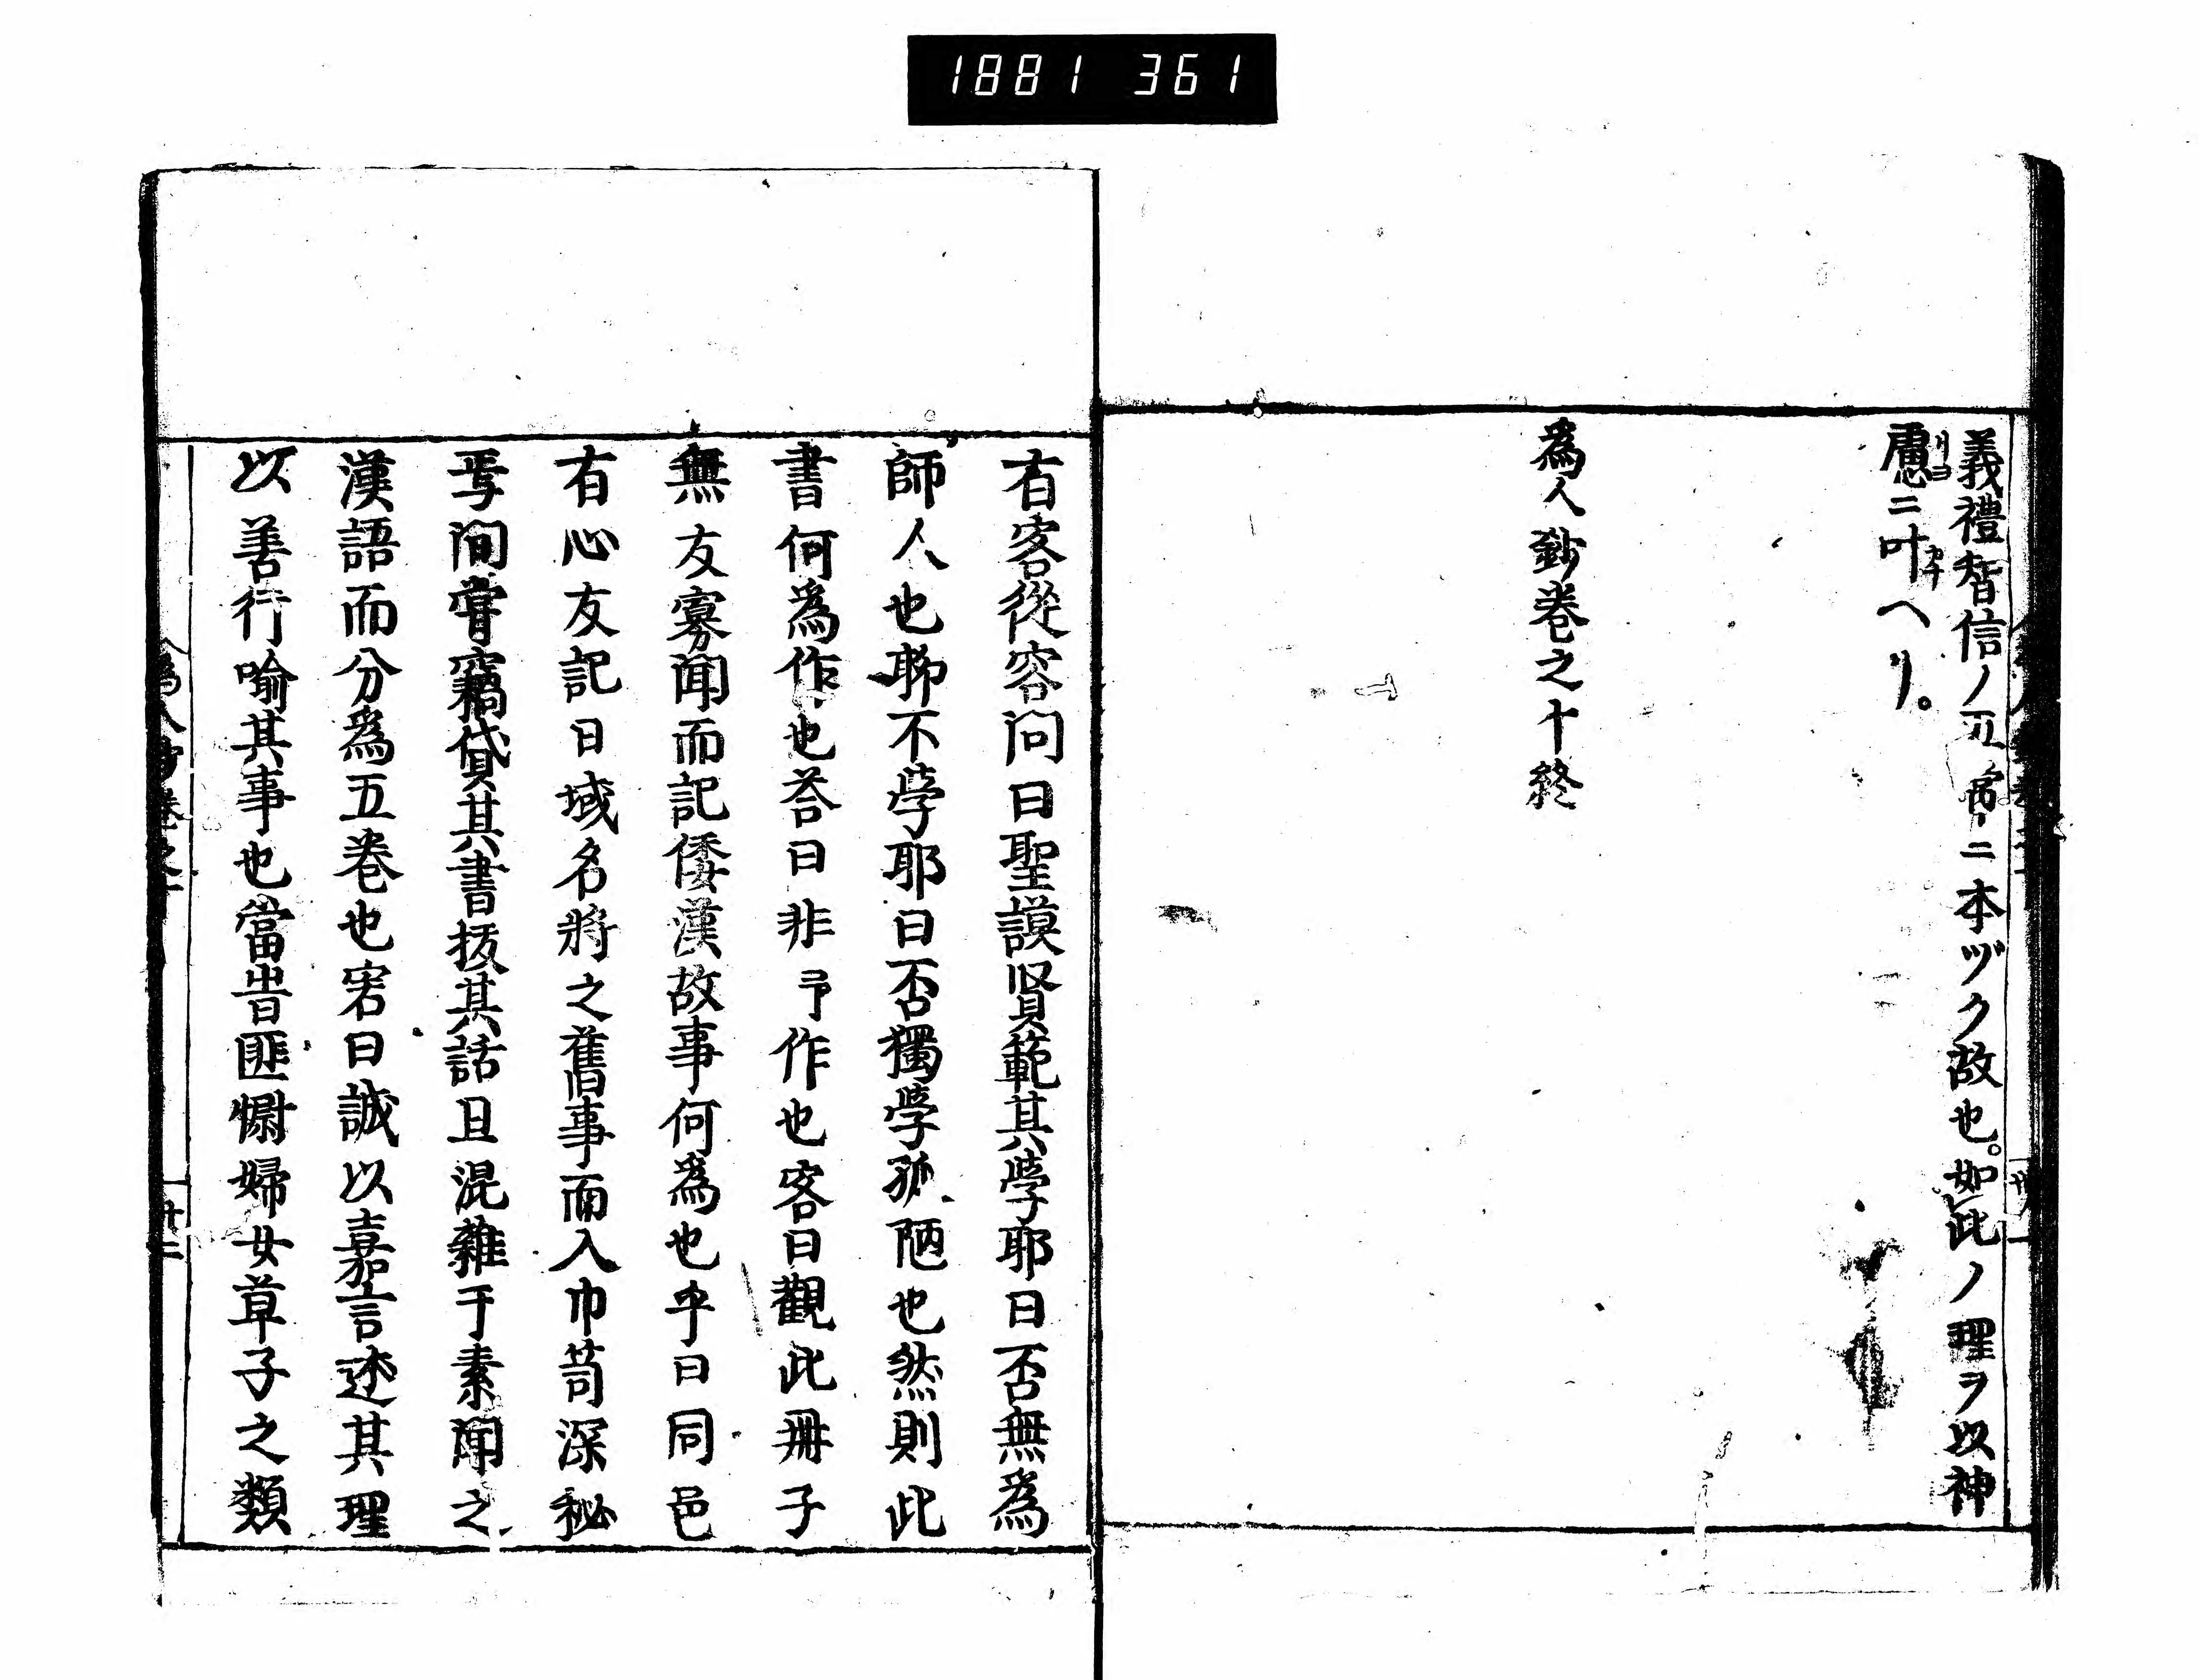 1881 361
義禮智信ノ五常ニ本ヅク故也。如此ノ理ヲ以神
慮ニ叶ヘリ。
リヨ
カナ
爲人鈔巻之十終
有客從容问曰聖謨賢範其學耶曰否無爲
師人也聊不學耶曰否獨學孤陋也然則此
書何爲作也荅曰非予作也客曰觀此冊子
無友寡闻而記倭漢故事何爲也乎曰同邑
有心友記日域名將之舊事而入巾笥深秘
焉间嘗竊貸其書抜其話且混雜于素聞之
漢語而分爲五巻也客曰誠以嘉言述其理
以善行喻其事也當旹匪啻婦女草子之類